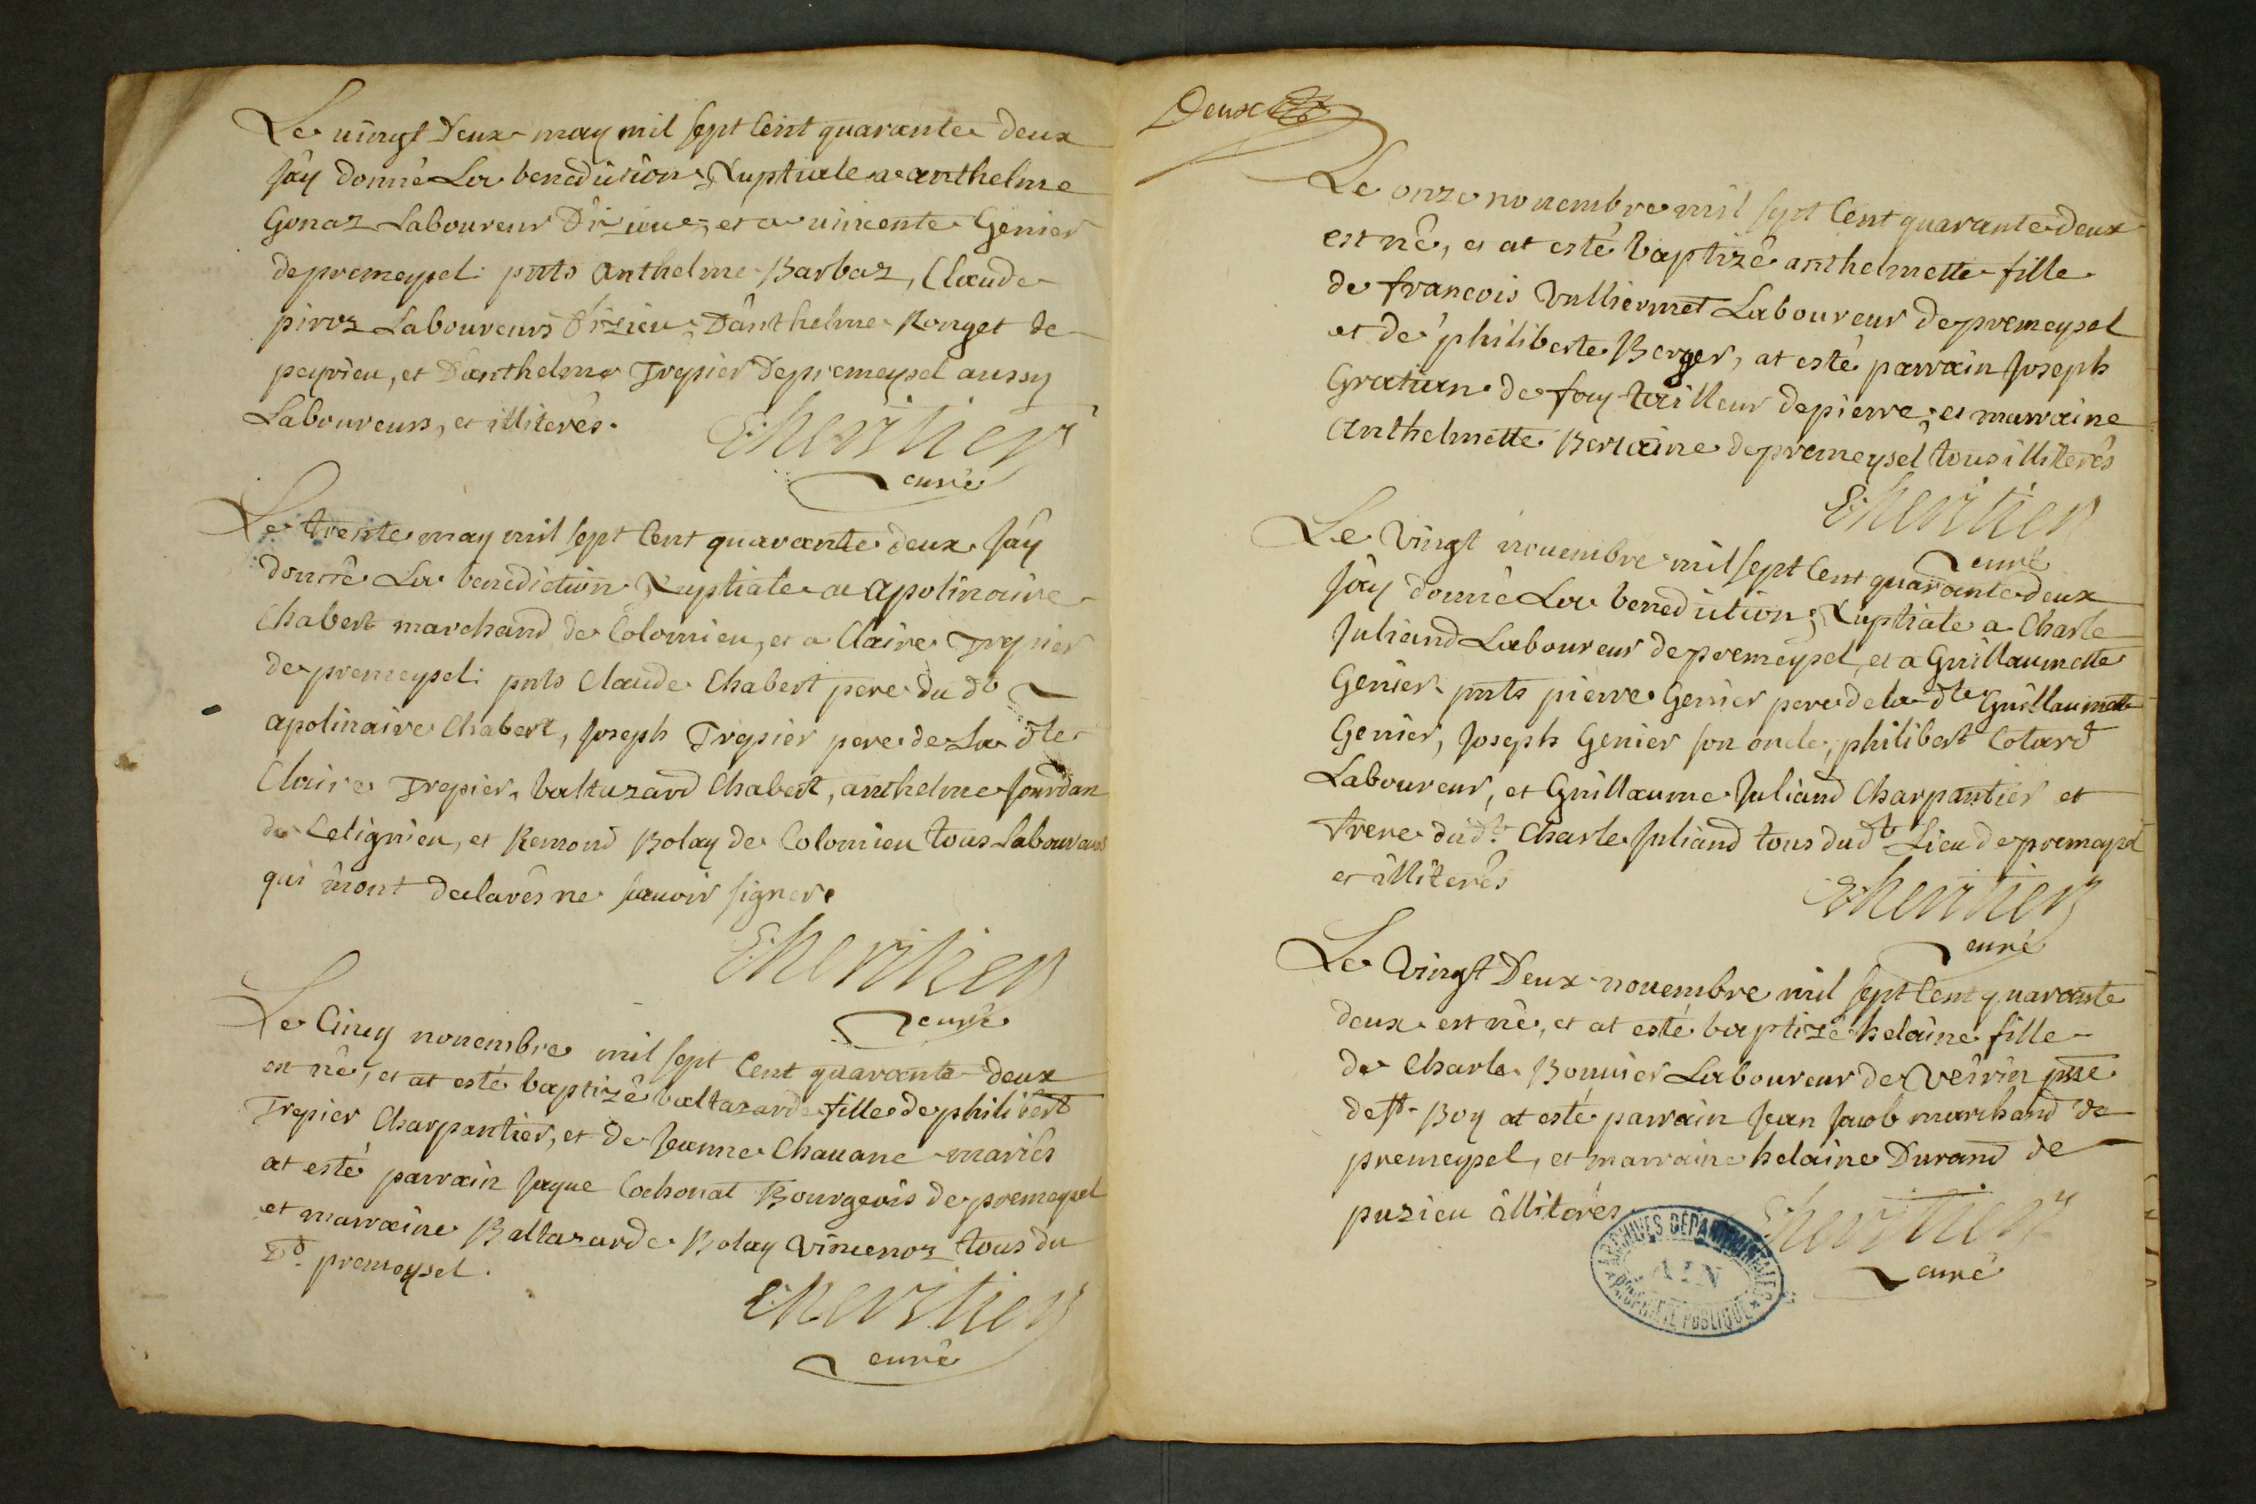 Le vingt Deux may mil sept Cent quarante deux
Jay donné La benediction Nuptiale a anthelme
Gonaz Laboureur D'izieu, et a vincente Genier
de premeysel: pnts Anthelme Barbaz, Claude
piroz Laboureurs d'izieu, D'anthelme Rouget de
peyrieu, et D'anthelme Trepier de premeysel aussy
Laboureurs, et illiterés.
Eheritier
curé
Le trente may mil sept Cent quarante deux Jay
donné La benediction Nuptiale a apolinaire
Chabert marchand de Colomieu, et a Claire Trepier
de premeysel: pnts Claude Chabert pere du dt
apolinaire Chabert, Joseph Trepier pere de La dte
Claire Trepier, baltazard Chabert, anthelme Jourdan
de Celignieu, et Remond Bolay de Colomieu tous Laboureurs
qui m'ont declarés ne sauoir signer.
Eheritier
curé
Le Cinq nouembre mil sept Cent quarante deux
est né, et at esté baptizé baltazarde fille de philibert
Trepier Charpantier, et de Jeanne Chauane mariés
at esté parrain Jaque Cochonat Bourgeois de premeysel
et marraine Baltazarde Bolay Vincenoz tous du
Dt. premeysel.
Eheritier
curé
Deux
Le onze nouembre mil sept Cent quarante deux
est né, et at esté baptizé anthelmette fille
de francois Vulliermet Laboureur de premeysel
et de philiberte Berger, at esté parrain Joseph
Gratian de fay tailleur de pierre, et marraine
Anthelmette Bertaine de premeysel tous illiterés
Eheritier
curé
Le Vingt nouembre mil sept Cent quarante deux
Jay donné La benediction Nuptiale a Charle
Juliand Laboureur de premeysel, et a Guillaumette
Genier pnts pierre Genier pere de la dte Guillaumette
Genier, Joseph Genier son oncle, philibert Cotard
Laboureur, et Guillaume Juliand Charpantier et
frere dudt. Charle Juliand tous dudt Lieu de premeysel
et illiterés
Eheritier
curé
Le Vingt Deux nouembre mil sept Cent quarante
deux est né, et at esté baptizé helaine fille
de Charle Bouuier Laboureur de Veirin psse
de st. Boy at esté parrain Jean Jacob marchand de
premeysel, et marraine helaine Durand de
puzieu illiterés.
Eheritier
curé
ARCHIVES DÉPARTEMENTALES
AIN
PROPRIÉTÉ PUBLIQUE